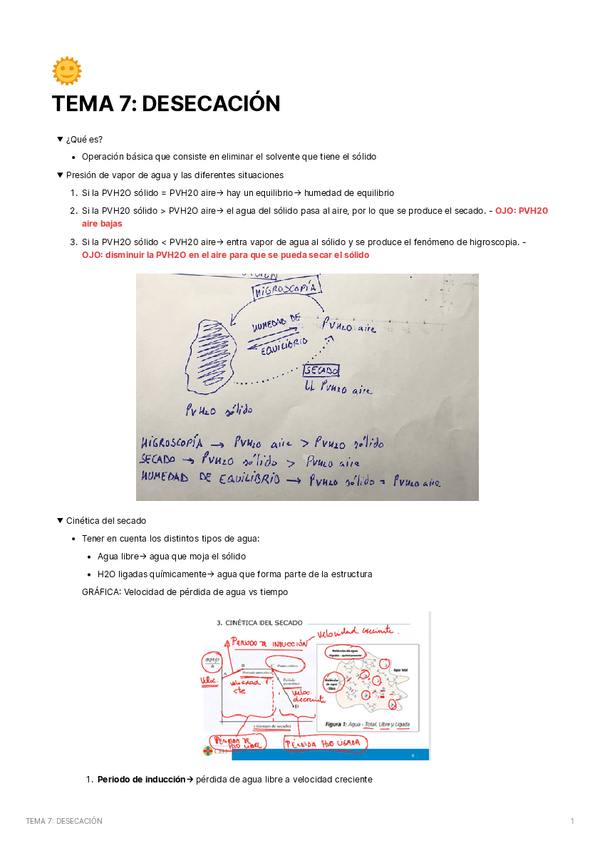 TEMA 7: DESECACIÓN
¿Qué es?
Operación básica que consiste en eliminar el solvente que tiene el sólido
Presión de vapor de agua y las diferentes situaciones
1. Si la PVH2O sólido = PVH20 aire→ hay un equilibrio→ humedad de equilibrio
2. Si la PVH20 sólido > PVH2O aire→ el agua del sólido pasa al aire, por lo que se produce el secado. - OJO: PVH20
aire bajas
3. Si la PVH2O sólido < PVH2O aire→ entra vapor de agua al sólido y se produce el fenómeno de higroscopia. -
OJO: disminuir la PVH2O en el aire para que se pueda secar el sólido
HIGROSCOPÍA
HUMEDAD DE
EQUILIBRIO
PVH2O aire
SECADO
↓↓ PVH2O aire
PVH2O sólido
HIGROSCOPÍA → PVH2O aire > PVH2O sólido
SECADO → PVH2O sólido > PVH2O aire
HUMEDAD DE EQUILIBRIO → PVH2O sólido = PVH2O aire
Cinética del secado
Tener en cuenta los distintos tipos de agua:
Agua libre→ agua que moja el sólido
H2O ligadas químicamente→ agua que forma parte de la estructura
GRÁFICA: Velocidad de pérdida de agua vs tiempo
3. CINÉTICA DEL SECADO
Velocidad creciente.
PERIODO DE INDUCCIÓN
Veloc.
velocidad
cte
veloc.
decreciente
Agua total
Figura 1: Agua - Total, Libre y Ligada
PÉRDIDA DE
H2O LIBRE
PÉRDIDA H2O LIGADA
1. Periodo de inducción→ pérdida de agua libre a velocidad creciente
TEMA 7: DESECACIÓN
1